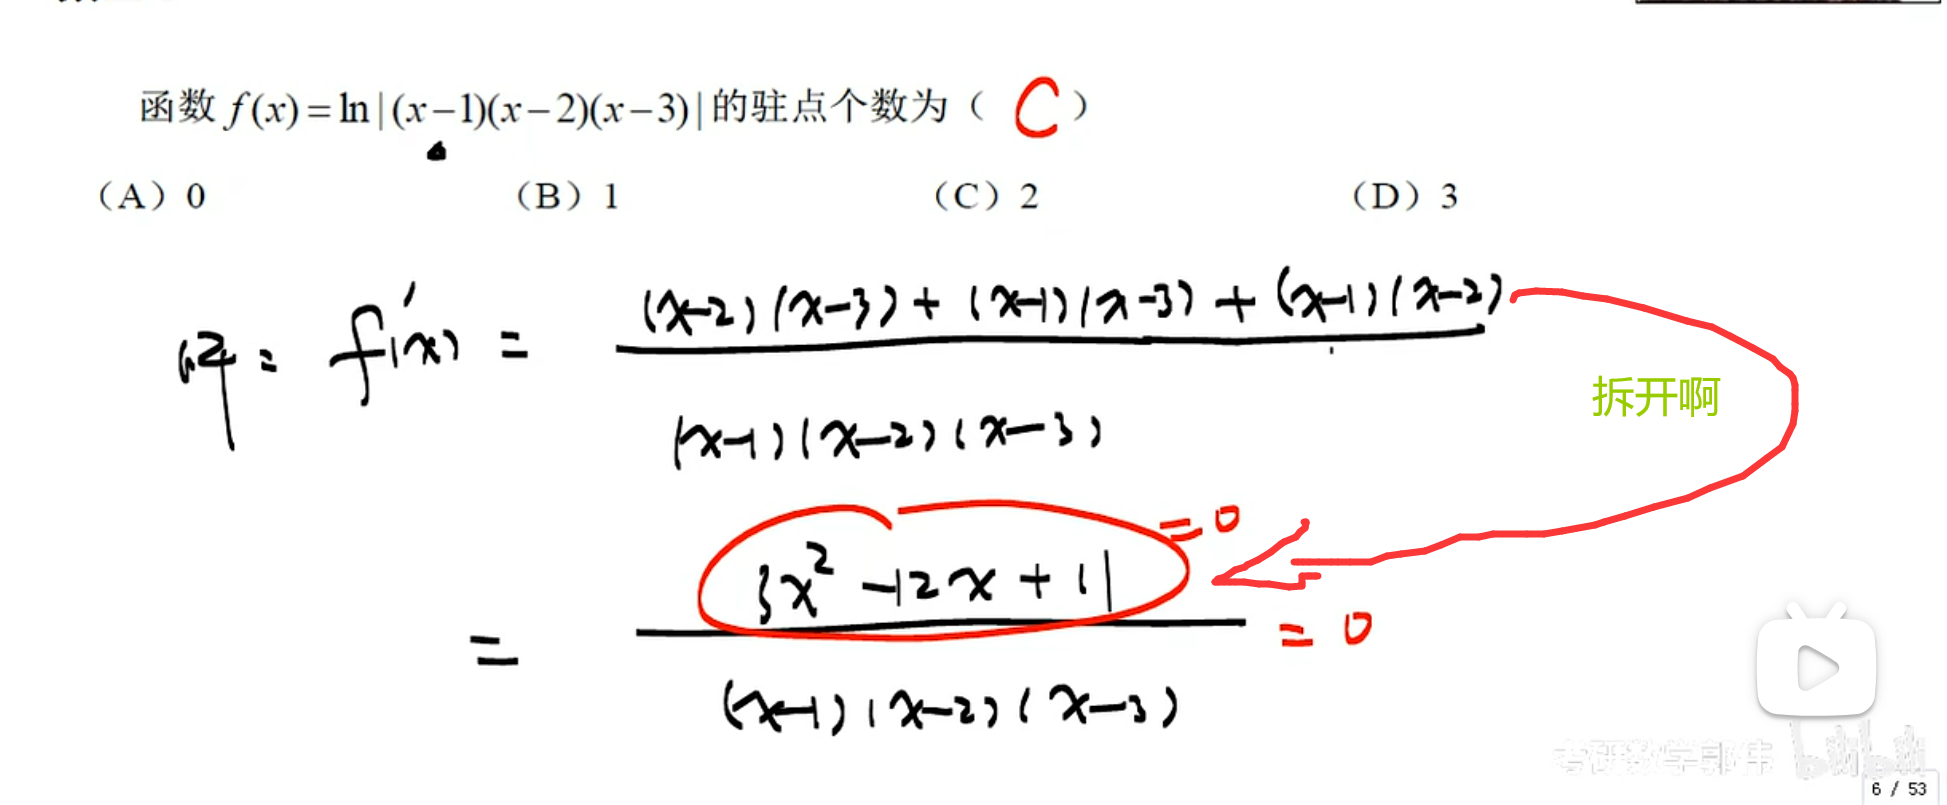 函数 f(x)=ln|(x−1)(x−2)(x−3)|的驻点个数为（ C ）
（A）0 （B）1 （C）2 （D）3
解: f'(x) = (x-2)(x-3)+(x-1)(x-3)+(x-1)(x-2)
拆开啊
(x-1)(x-2)(x-3)
=0
= 3x²-12x+11 =0
(x-1)(x-2)(x-3)
考研数学郭伟 bilibili
6 / 53